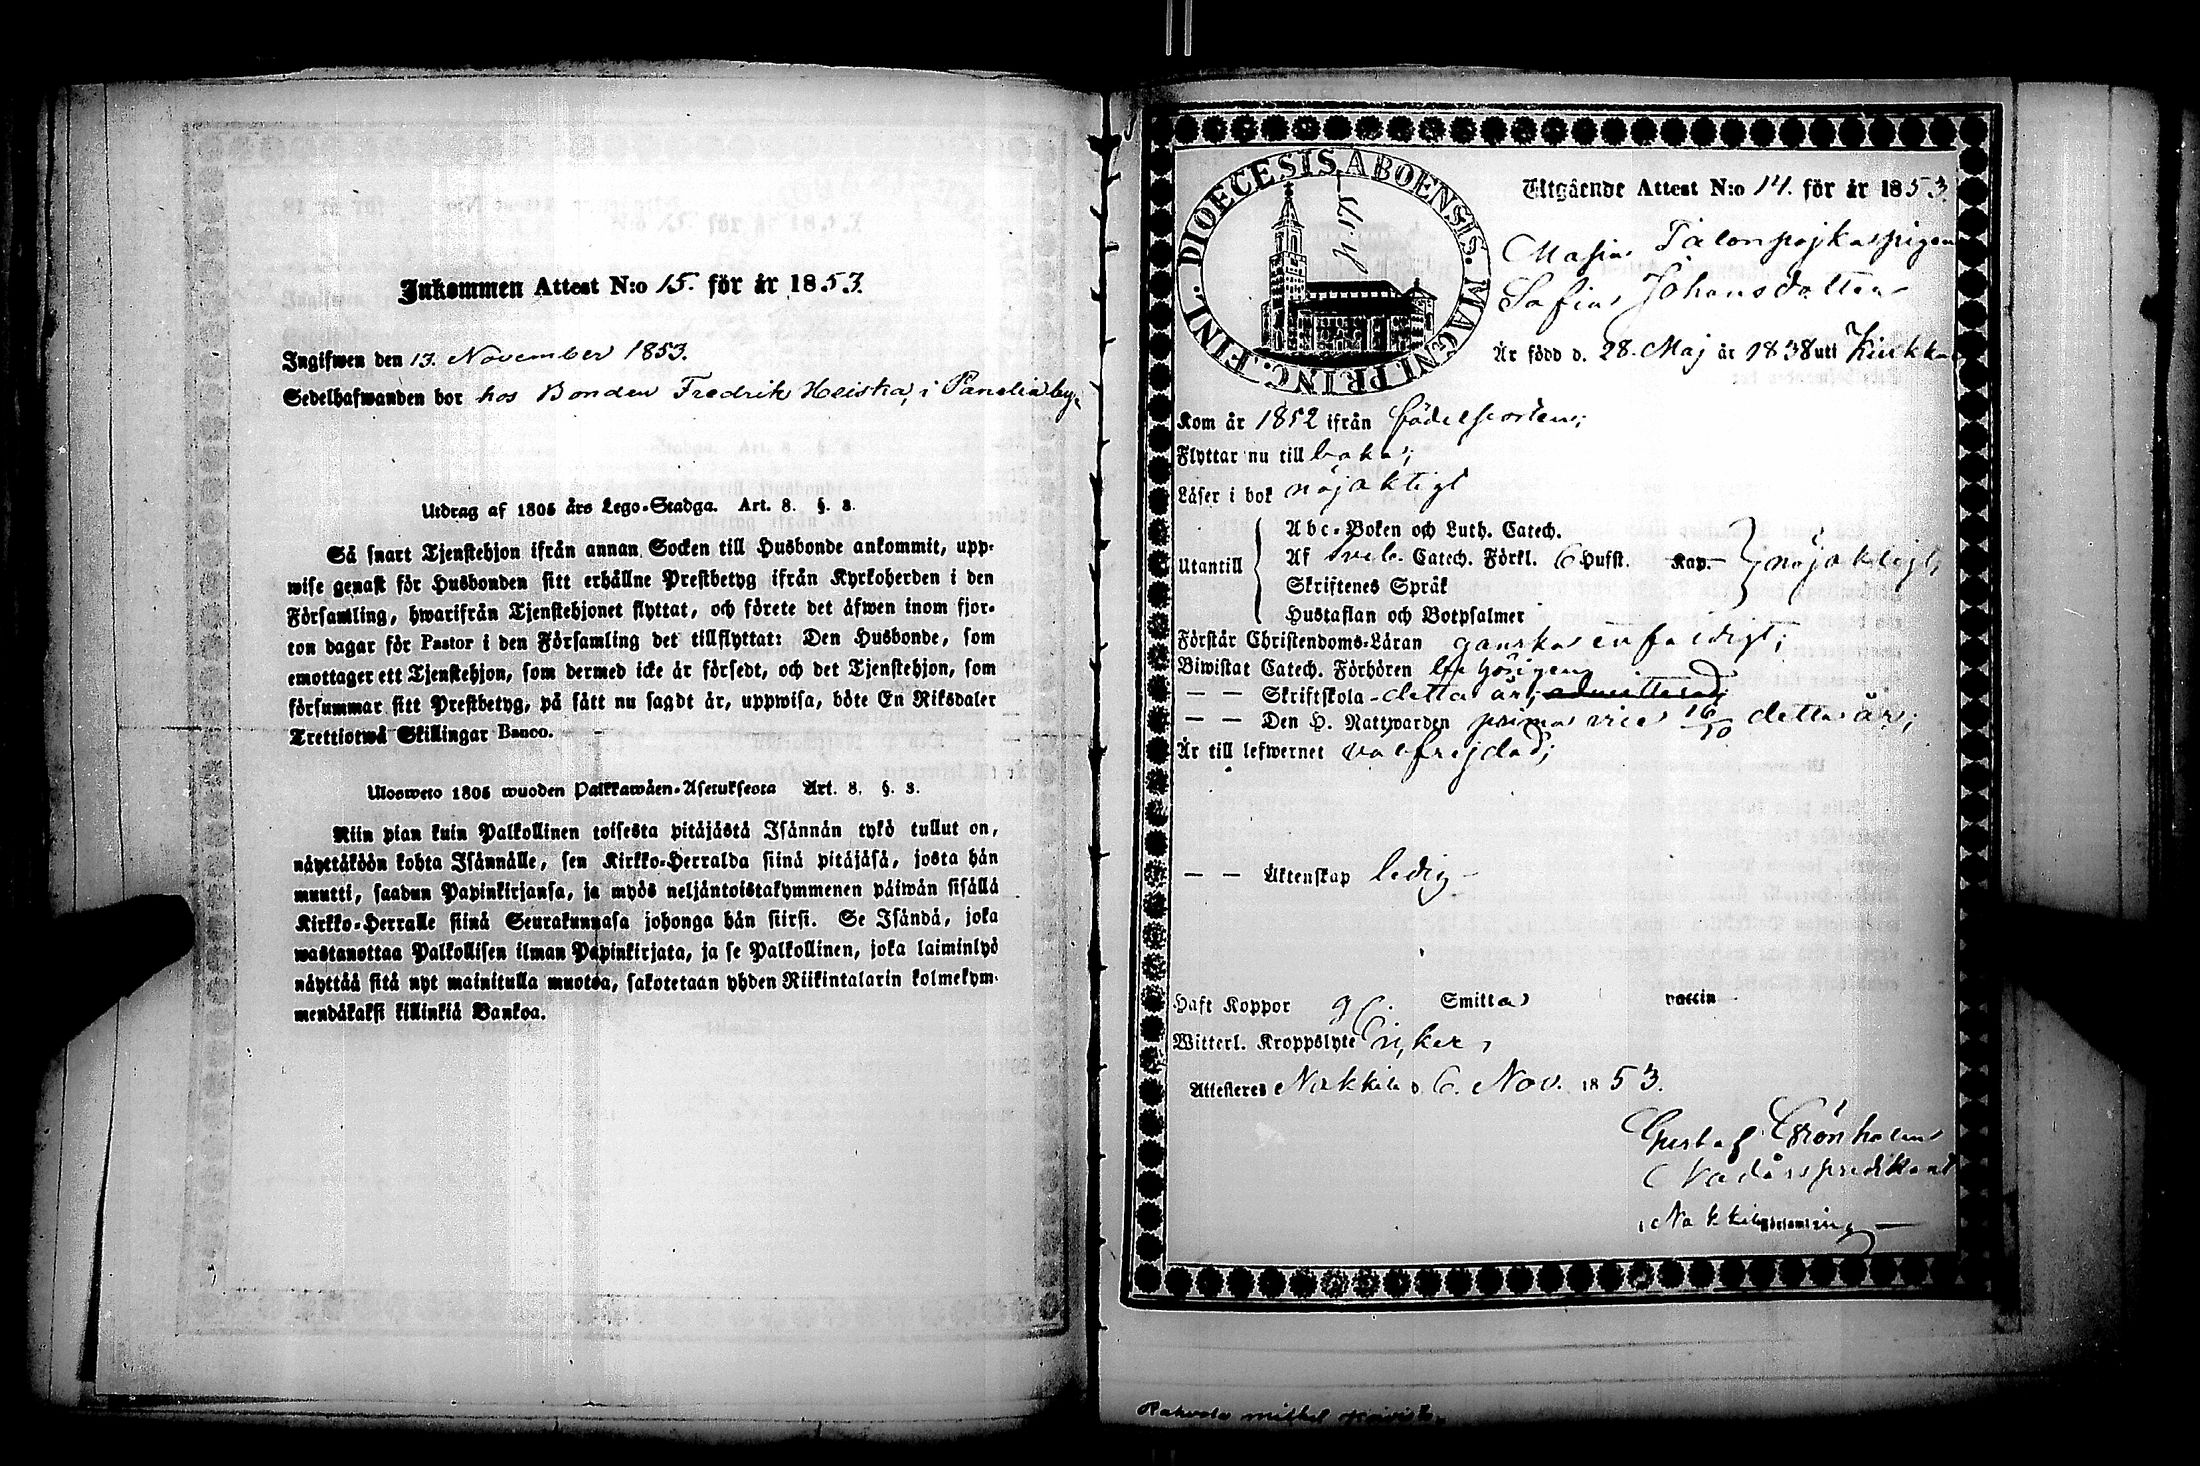 Inkommen Attest N:o 15. för år 1853.
Ingifwen den 13. November 1853.
Sedelhafwanden bor hos Bonden Fredrik Heiska, i Panelia by.
Utdrag af 1805 års Lego-Stadga. Art. 8. §. 3.
Så snart Tjenstehjon ifrån annan Socken till Husbonde ankommit, upp-
wise genast för Husbonden sitt erhållne Prestbetyg ifrån Kyrkoherden i den
Församling, hwarifrån Tjenstehjonet flyttat, och förete det äfwen inom fjor-
ton dagar för Pastor i den Församling det tillflyttat: Den Husbonde, som
emottager ett Tjenstehjon, som dermed icke är försedt, och det Tjenstehjon, som
försummar sitt Prestbetyg, på sätt nu sagdt är, uppwisa, böte En Riksdaler
Trettiotwå Skillingar Banco.
Ulosweto 1805 wuoden Palkkawäen-Asetuksesta Art. 8. §. 3.
Niin pian kuin Palkollinen toisesta pitäjästä Isännän tykö tullut on,
näyttäköön kohta Isännälle, sen Kirkko-Herralda siinä pitäjäsä, josta hän
muutti, saadun Papinkirjansa, ja myös neljäntoistakymmenen päiwän sisällä
Kirkko-Herralle siinä Seurakunnasa johonga hän siirsi. Se Isändä, joka
wastanottaa Palkollisen ilman Papinkirjata, ja se Palkollinen, joka laiminlyö
näyttää sitä nyt mainitulla muotoa, sakotetaan yhden Riikintalarin kolmekym-
mendäkaksi killinkiä Bankoa.
DIOECESIS ABOENSIS. MAGNI PRINC. FINL.
Utgående Attest N:o 14. för år 1853.
Talonpojkaspigan
Sofia Johansdotter
Är född d. 28. Maj år 1838 uti
Kom år 1852 ifrån födelseorten;
Flyttar nu till baka;
Läser i bok nöjaktigt
Utantill
Abc-Boken och Luth. Catech.
Af Sveb. Catech. Förkl. 6 Hufst. Kap. nöjaktigt;
Skriftenes Språk
Hustaflan och Botpsalmer
Förstår Christendoms-Läran ganska enfaldigt;
Biwistat Catech. Förhören behörigen
— — Skriftskola detta år, admitterad;
— — Den H. Nattwarden prima vice 16/10 detta år;
Är till lefwernet välfrejdad;
— — Äktenskap ledig —
Haft Koppor Smitta vaccin
Witterl. Kroppslyte
Attesteres Nakkila d. 6. Nov. 1853.
Gustaf Grönholm
Vadårspredikant
i Nakkila församling